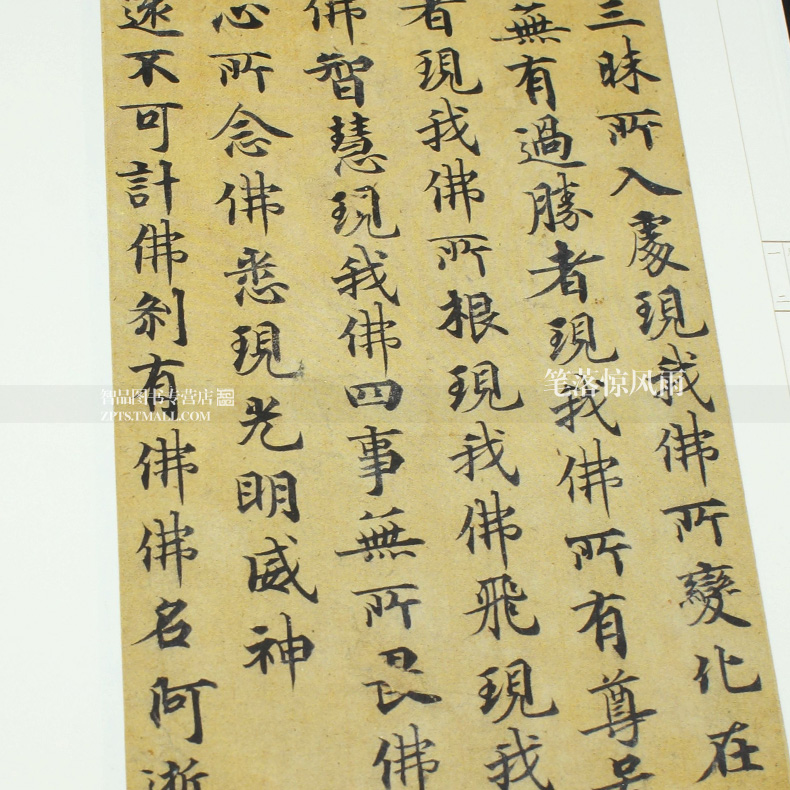 三昧所入處現我佛所變化在
無有過勝者現我佛所有尊
者現我佛所根現我佛飛現我
佛智慧現我佛四事無所畏佛
心所念佛悉現光明威神
遠不可計佛剎有佛佛名阿
笔落惊风雨
智品图书专营店
ZPTS.TMALL.COM